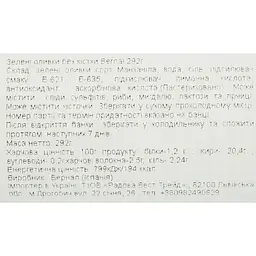 Зелені оливки без кістки Bernal 292г
Склад: зелені оливки сорт Манзанілла, вода, сіль, підсилювач
смаку Е-621, Е-635, підкислювач: лимонна кислота,
антиоксидант: аскорбінова кислота.(Пастеризовані). Може
містити сліди сульфітів, риби, мигдалю, лактози та гірчиці.
Може містити кісточки. Зберігати у сухому прохолодному місці.
Номер партії та термін придатності вказано на банці.
Після відкриття банки зберігати у холодильнику та спожити
протягом наступних 7 днів.
Маса нетто: 292г
Харчова цінність 100г продукту: білки-1,2 г, жири- 20,4г,
вуглеводи- 0,2(харчові волокна-2,5г, сіль- 2,24г
Енергетична цінність: 799КДж/194 ккал
Виробник: Бернал (Іспанія)
Імпортер в Україні: ТзОВ «Радова Вест Трейд», 82100 Львівська
обл., м.Дрогобич, вул. 22 січня, 26